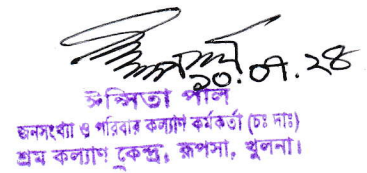 ২০.০৭.২৪
ঈপ্সিতা পাল
জনসংখ্যা ও পরিবার কল্যাণ কর্মকর্তা (চঃ দাঃ)
শ্রম কল্যাণ কেন্দ্র, রূপসা, খুলনা।